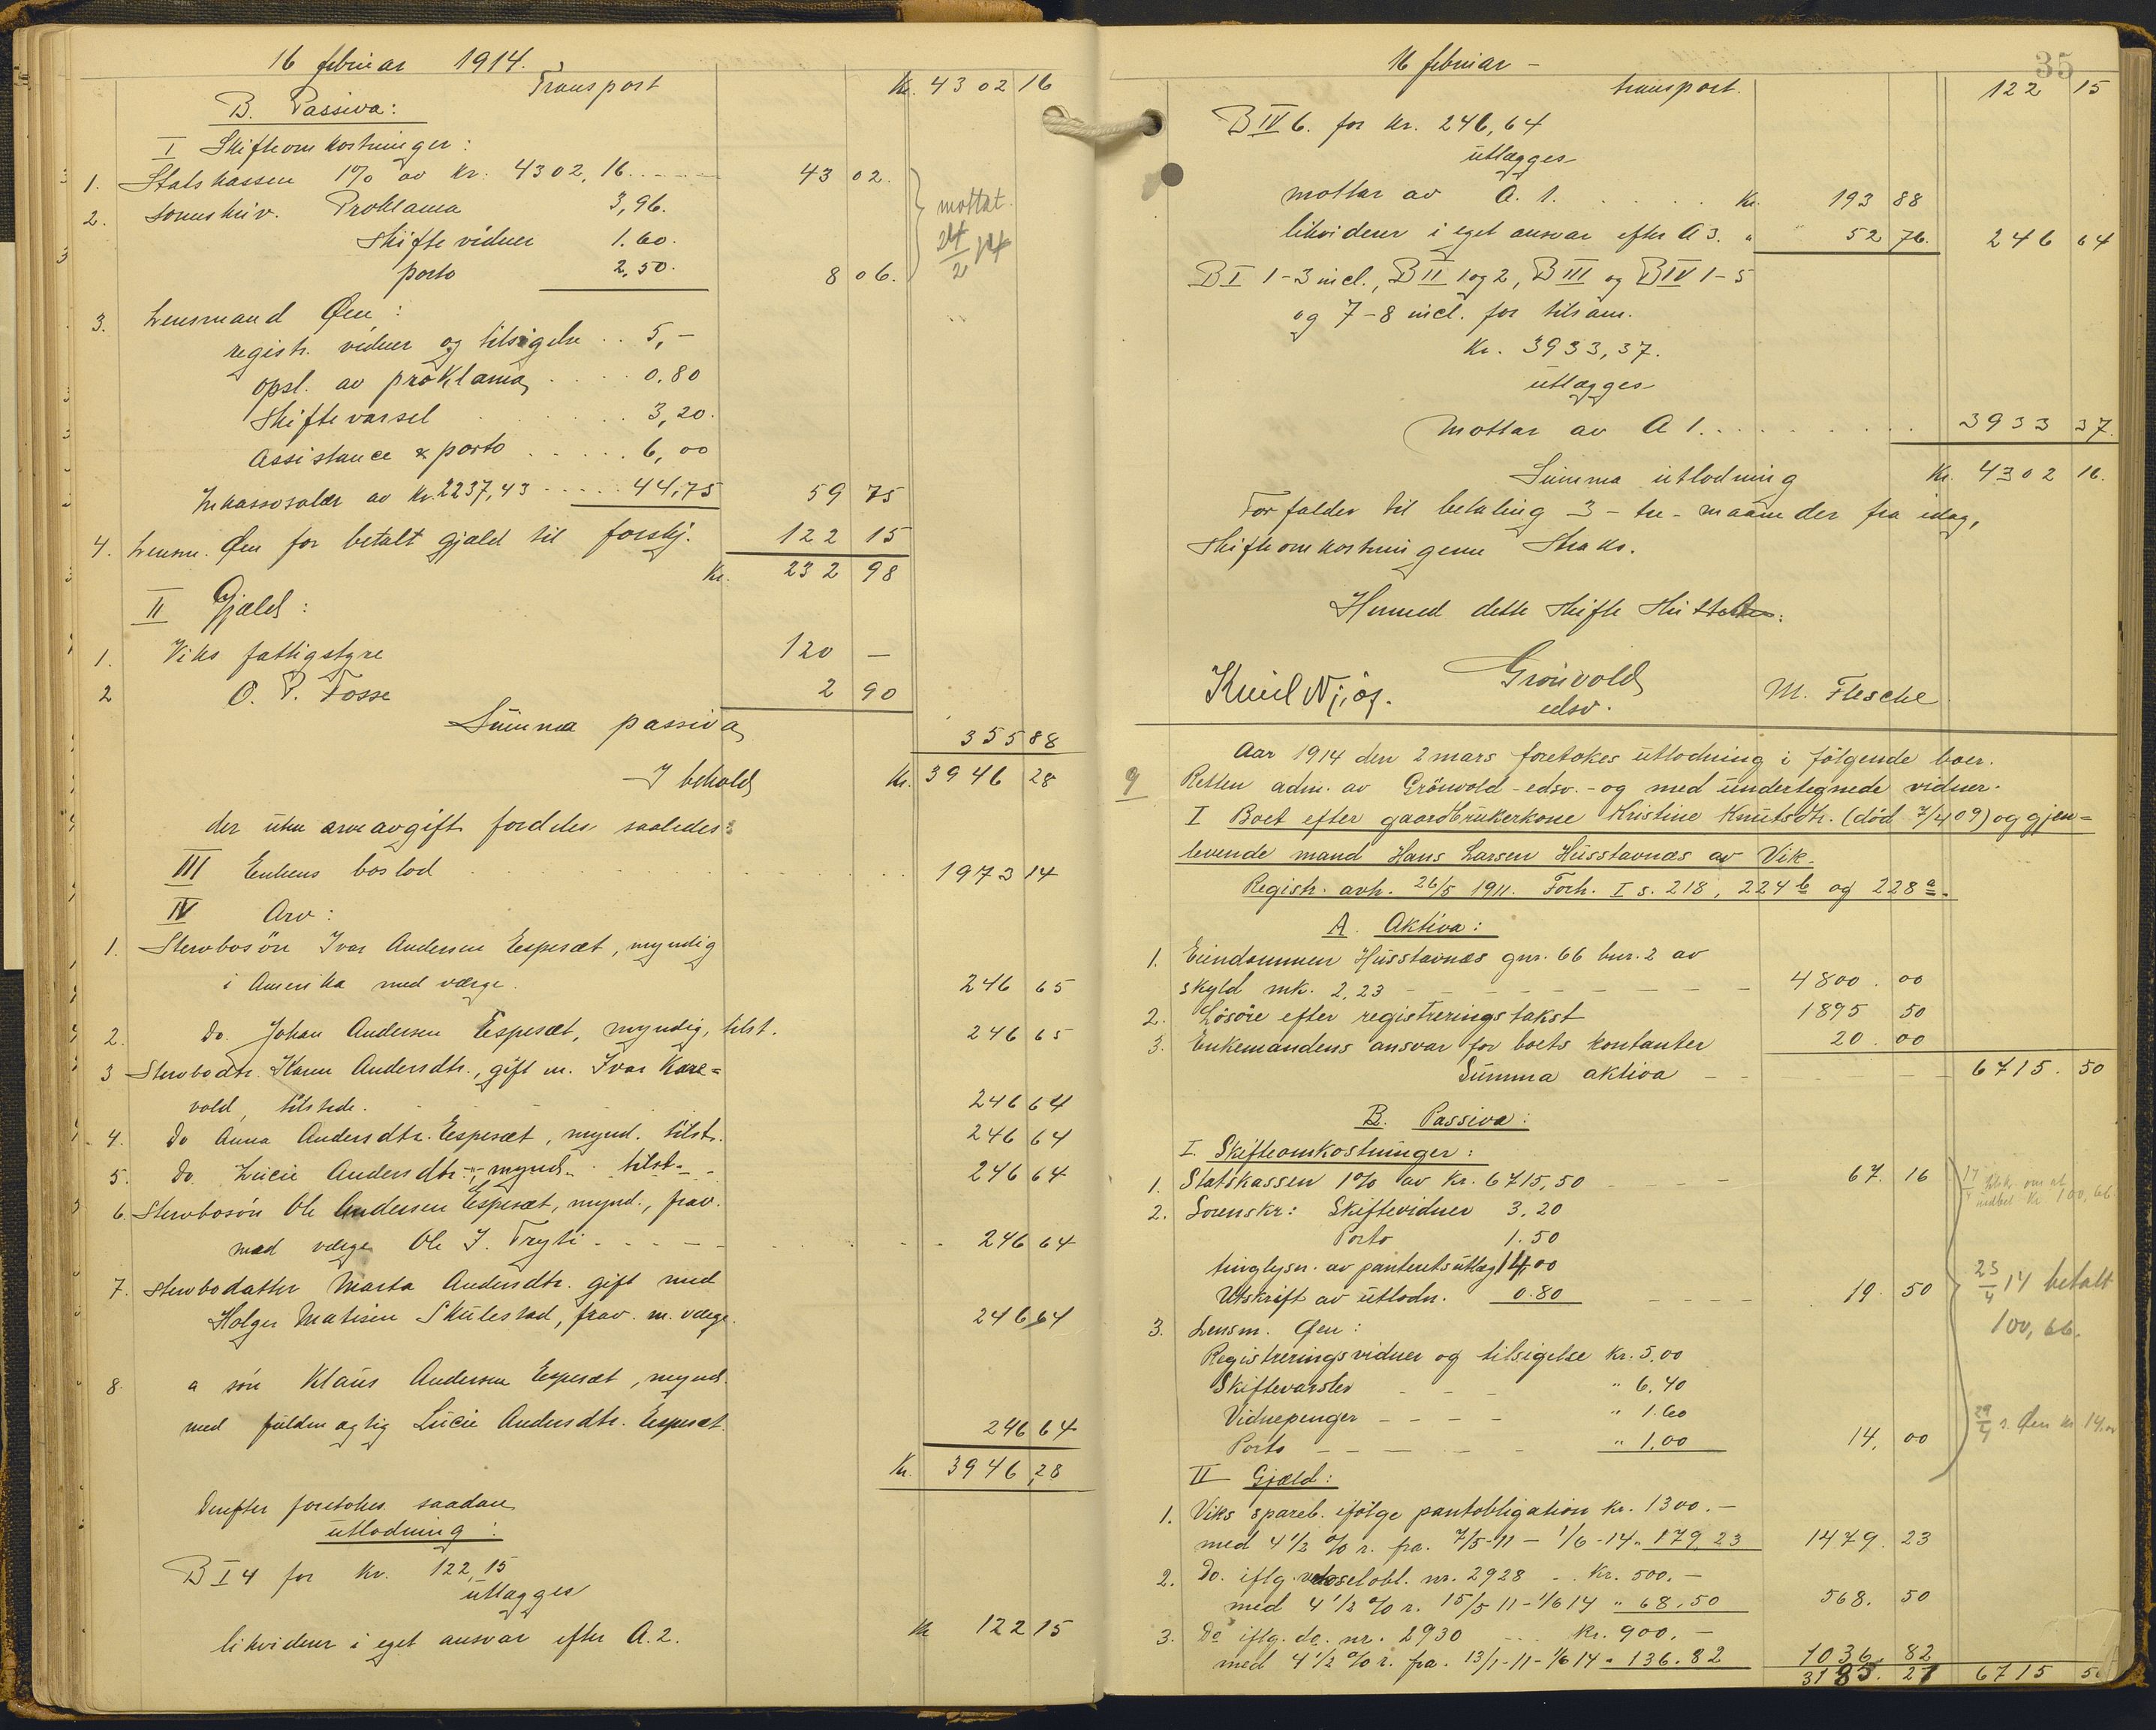 16 februar 1914.
Transport Kr. 4302 16
B. Passiva:
I Skifteomkostninger:
1. Statskassen 1% av kr. 4302,16 43 02.
2. Sorenskriv. Proklama 3,96.
Skiftevidner 1.60.
porto 2,50. 8 06.
mottat
24/2 14
3. Lensmand Øen:
registr. vidner og tilsigelse .. 5,-
opsl. av proklama .... 0.80
Skiftevarsel 3,20.
Assistance & porto ..... 6,00
Inkassosalær av kr. 2237,43 ..... 44,75 59 75
4. Lensm. Øen for betalt gjæld til forskj. 122 15
Kr. 232 98
II Gjæld:
1. Viks fattigstyre 120 —
2 O. P. Fosse 2 90
Summa passiva 355 88
I behold Kr. 3946 28
der uten arveavgift fordeles saaledes:
III Enkens boslod 1973 14
IV Arv:
1. Stervbosön Ivar Andersen Espesæt, myndig
i Amerika med værge. 246 65
2. Do. Johan Andersen Espesæt, myndig, tilst. 246 65
3 Stervbodtr. Karen Andersdtr., gift m. Ivar Kare=
vold, tilstede. 246 64
4. Do Anna Andersdtr. Espesæt, mynd. tilst. 246 64
5. Do. Lucie Andersdtr. -"-, mynd. tilst. 246 64
6. Stervbosön Ole Andersen Espesæt, mynd., frav.
med værge Ole J. Tryti 246 64
7. Stervbodatter Marta Andersdtr. gift med
Holger Matisen Skulestad, frav. m. værge. 246 64
8. a sön Klaus Andersen Espesæt, mynd.
med fuldmægtig Lucie Andersdtr. Espesæt. 246 64
Kr. 3946,28
Derefter foretokes saadan
utlodning:
B I 4 for kr. 122,15
utlægges
likviderer i eget ansvar efter A.2. Kr 122 15
35
16 februar -
transport. 122 15
B IV 6. for kr. 246,64
utlægges
mottar av A. 1. Kr. 193 88
likviderer i eget ansvar efter A 3. " 52 76. 246 64
B I 1-3 incl., B II 1 og 2, B III og B IV 1-5
og 7-8 incl. for tilsam.
Kr. 3933,37.
utlægges
Mottar av A 1. 3933 37.
Summa utlodning Kr. 4302 16.
Forfalder til betaling 3 - tre - maaneder fra idag,
skifteomkostningerne straks.
Hermed dette skifte sluttet.
Grönvold
edsv.
M. Flesche
Aar 1914 den 2 mars foretokes utlodning i fölgende boer.
9 Retten adm. av Grönvold - edsv. - og med undertegnede vidner.
I Boet efter gaardbrukerkone Kristine Knutsdtr. (död 7/4 09) og gjen=
levende mand Hans Larsen Husstavnæs av Vik.
Registr. avh. 26/5 1911. Forh. I s. 218, 224 b og 228 a.
A. Aktiva:
1. Eiendommen Husstavnæs gnr. 66 bnr. 2 av
skyld mk. 2,23 4800. 00
2. Lösöre efter registreringstakst 1895 50
3. Enkemandens ansvar for boets kontanter 20. 00
Summa aktiva 6715. 50
B. Passiva:
I. Skifteomkostninger:
1. Statskassen 1% av kr. 6715,50 67. 16
2. Sorenskr: Skiftevidner 3,20
Porto 1.50
tinglysn. av panteretsutlæg 14,00
Utskrift av utlodn. 0.80 19. 50
23/4 14 betalt
100,66.
3. Lensm. Øen:
Registreringsvidner og tilsigelse kr. 5,00
Skiftevarsler " 6,40
Vidnepenger " 1.60
Porto " 1,00 14, 00
29/4 s. Øen kr 14,00
II Gjæld:
1. Viks spareb. ifölge pantobligation kr. 1300.-
med 4 1/2 % r. fra. 7/5-11 - 1/6-14 " 179,23 1479. 23
2. Do. iflg. vekselobl. nr. 2928 .. kr. 500.-
med 4 1/2 % r. 15/5 11 - 1/6 14 " 68,50 568. 50
3. Do iflg. do. nr. 2930 ... kr. 900.-
med 4 1/2 % r. fra. 13/1-11 - 1/6 14 " 136.82 1036. 82
3185. 21 6715 50